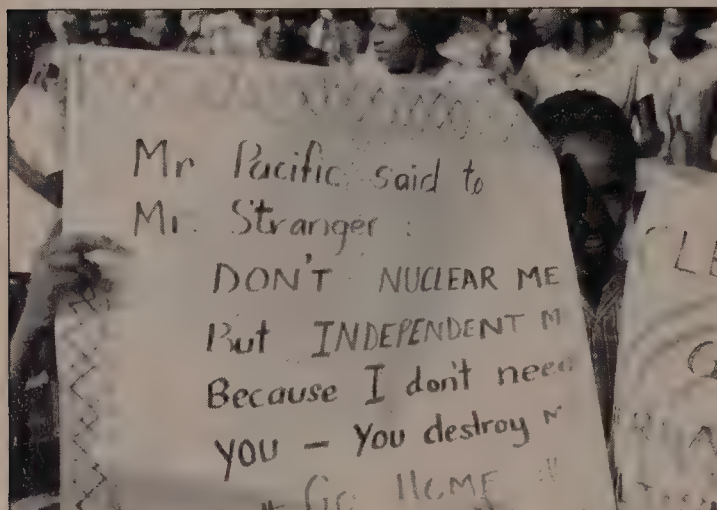 Mr Pacific said to
Mr. Stranger :
DON'T NUCLEAR ME
But INDEPENDENT M
Because I don't need
YOU – You destroy M
Go HOME